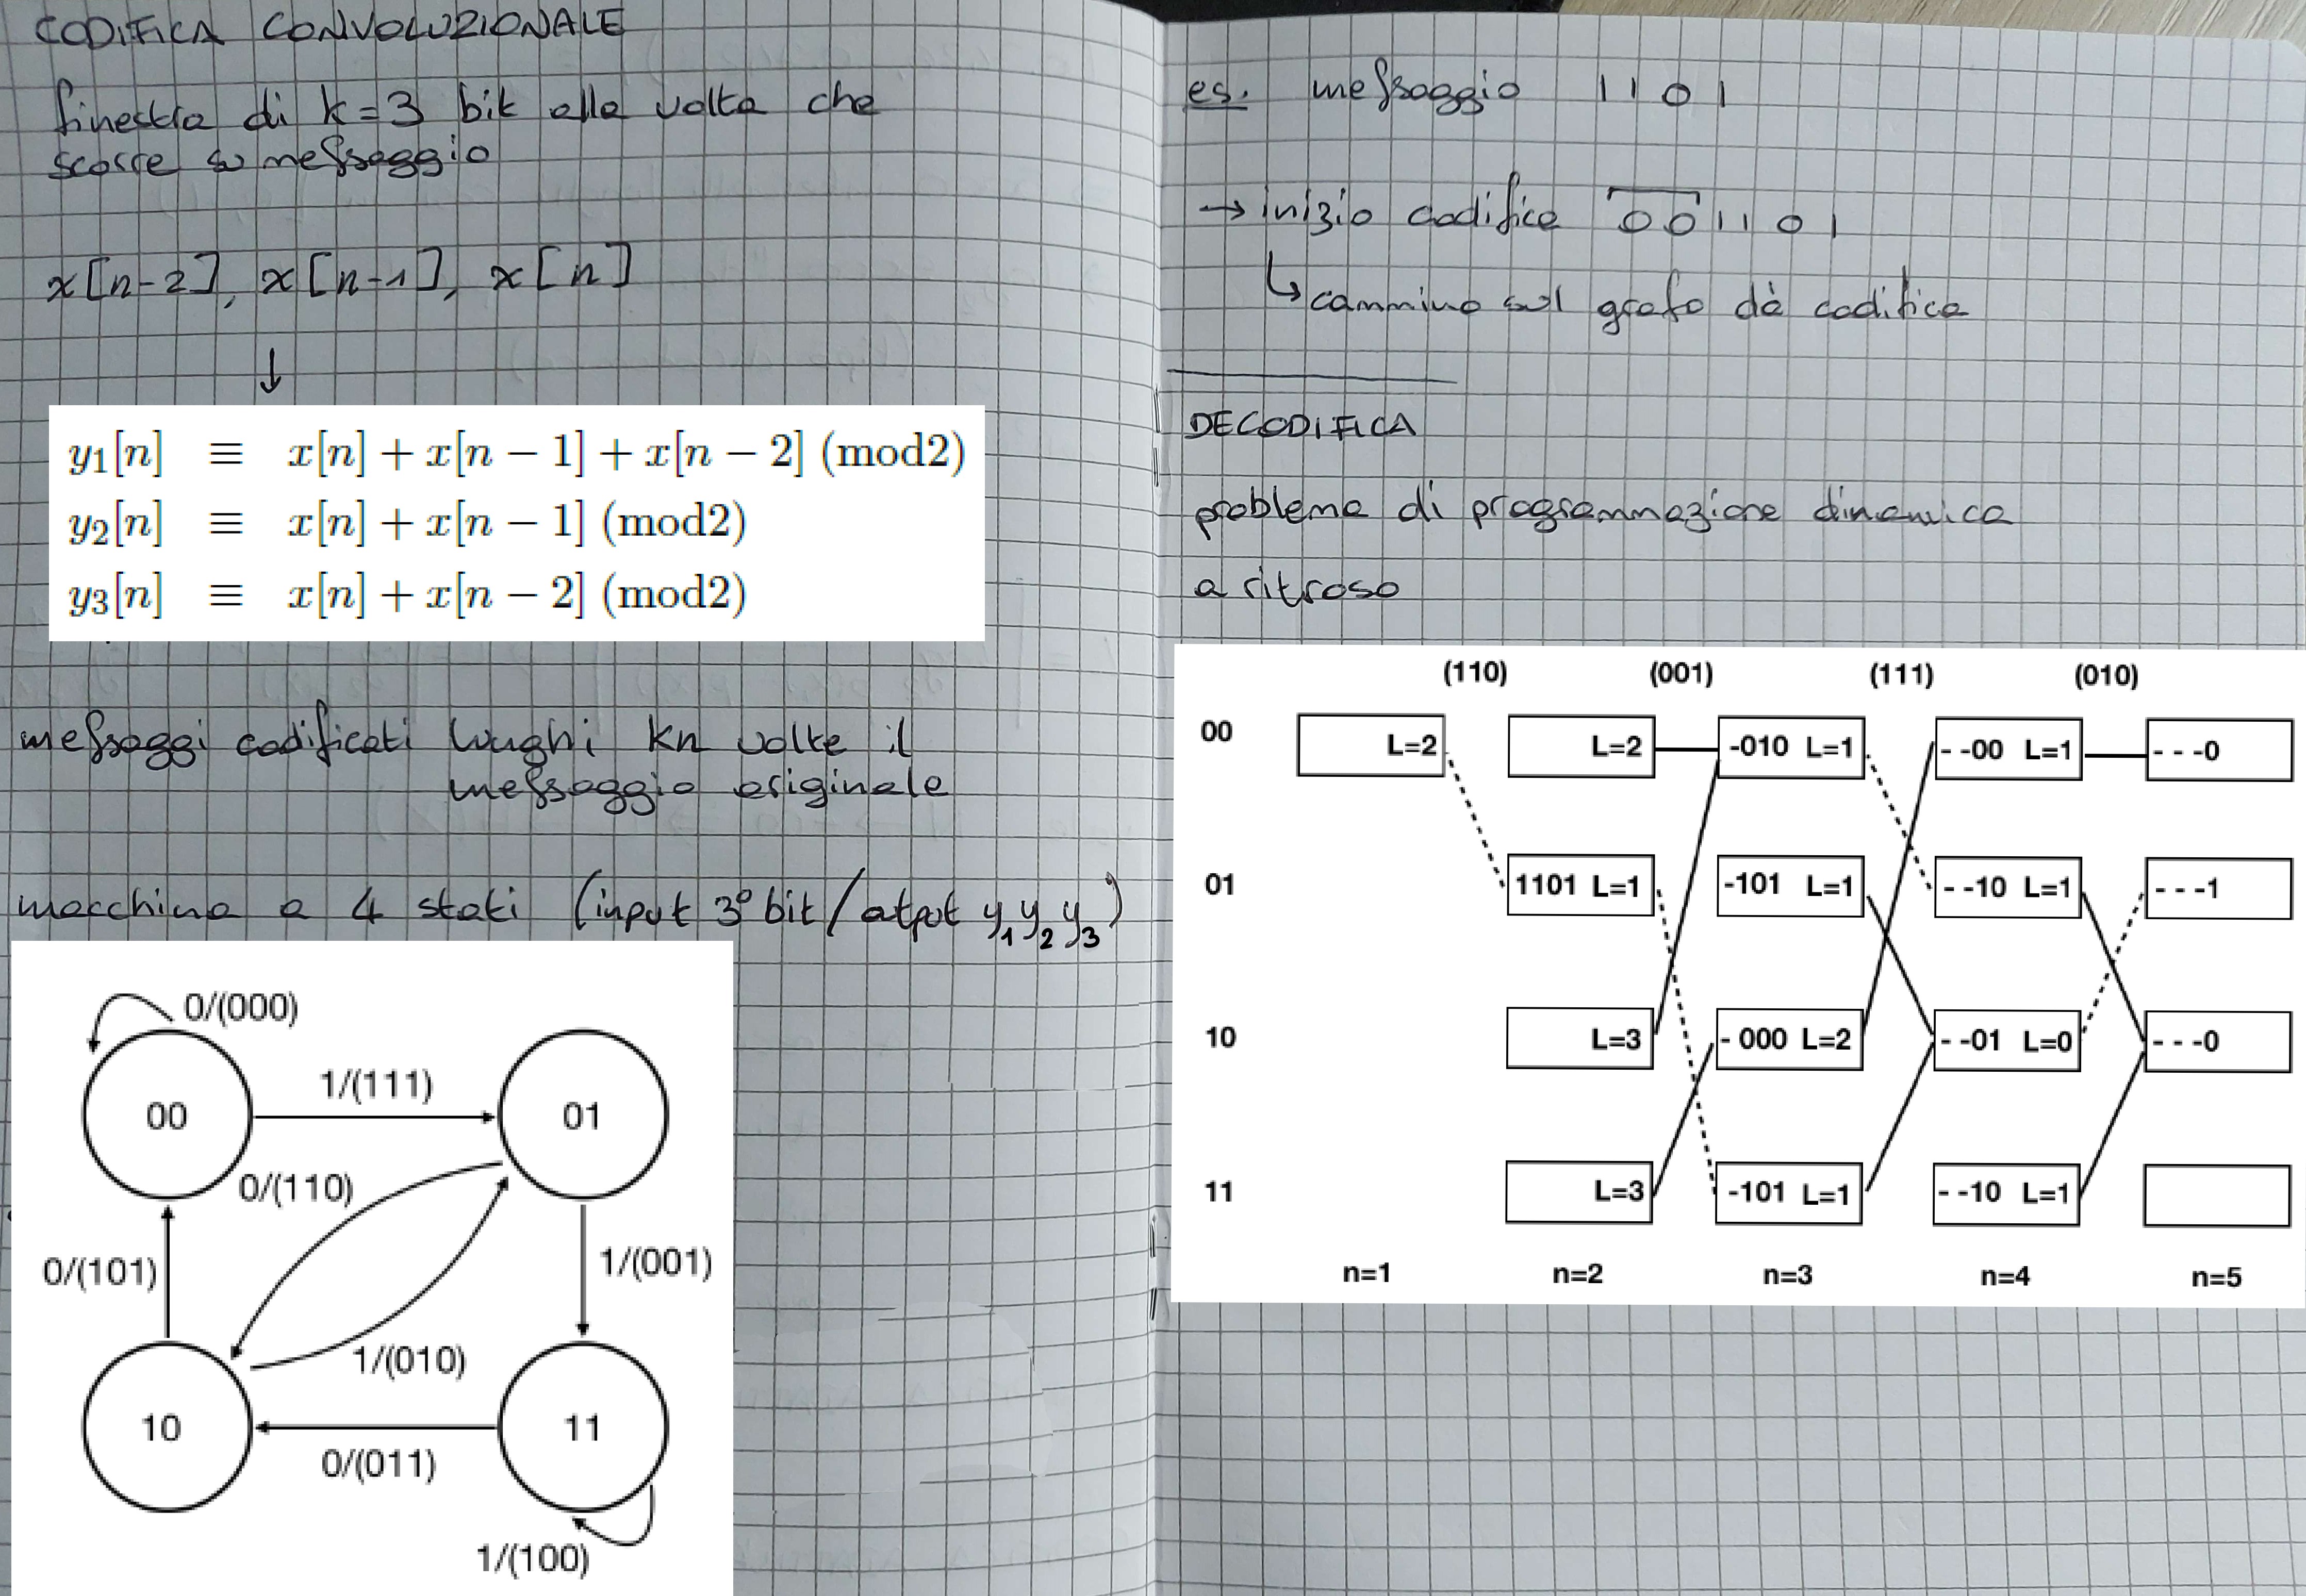 CODIFICA CONVOLUZIONALE
finestra di k=3 bit alla volta che
scorre su messaggio
x[n-2], x[n-1], x[n]
↓
y1[n] ≡ x[n] + x[n − 1] + x[n − 2] (mod2)
y2[n] ≡ x[n] + x[n − 1] (mod2)
y3[n] ≡ x[n] + x[n − 2] (mod2)
messaggi codificati lunghi kn volte il
messaggio originale
macchina a 4 stati (input 3° bit/otput y1 y2 y3)
0/(000)
1/(111)
00
01
0/(110)
0/(101)
1/(001)
1/(010)
10
11
0/(011)
1/(100)
es. messaggio 1101
→ inizio codifica 001101
↳ cammino sul grafo dà codifica
DECODIFICA
problema di programmazione dinamica
a ritroso
(110) (001) (111) (010)
00 L=2 L=2 -010 L=1 - -00 L=1 - - -0
01 1101 L=1 -101 L=1 - -10 L=1 - - -1
10 L=3 - 000 L=2 - -01 L=0 - - -0
11 L=3 -101 L=1 - -10 L=1
n=1 n=2 n=3 n=4 n=5